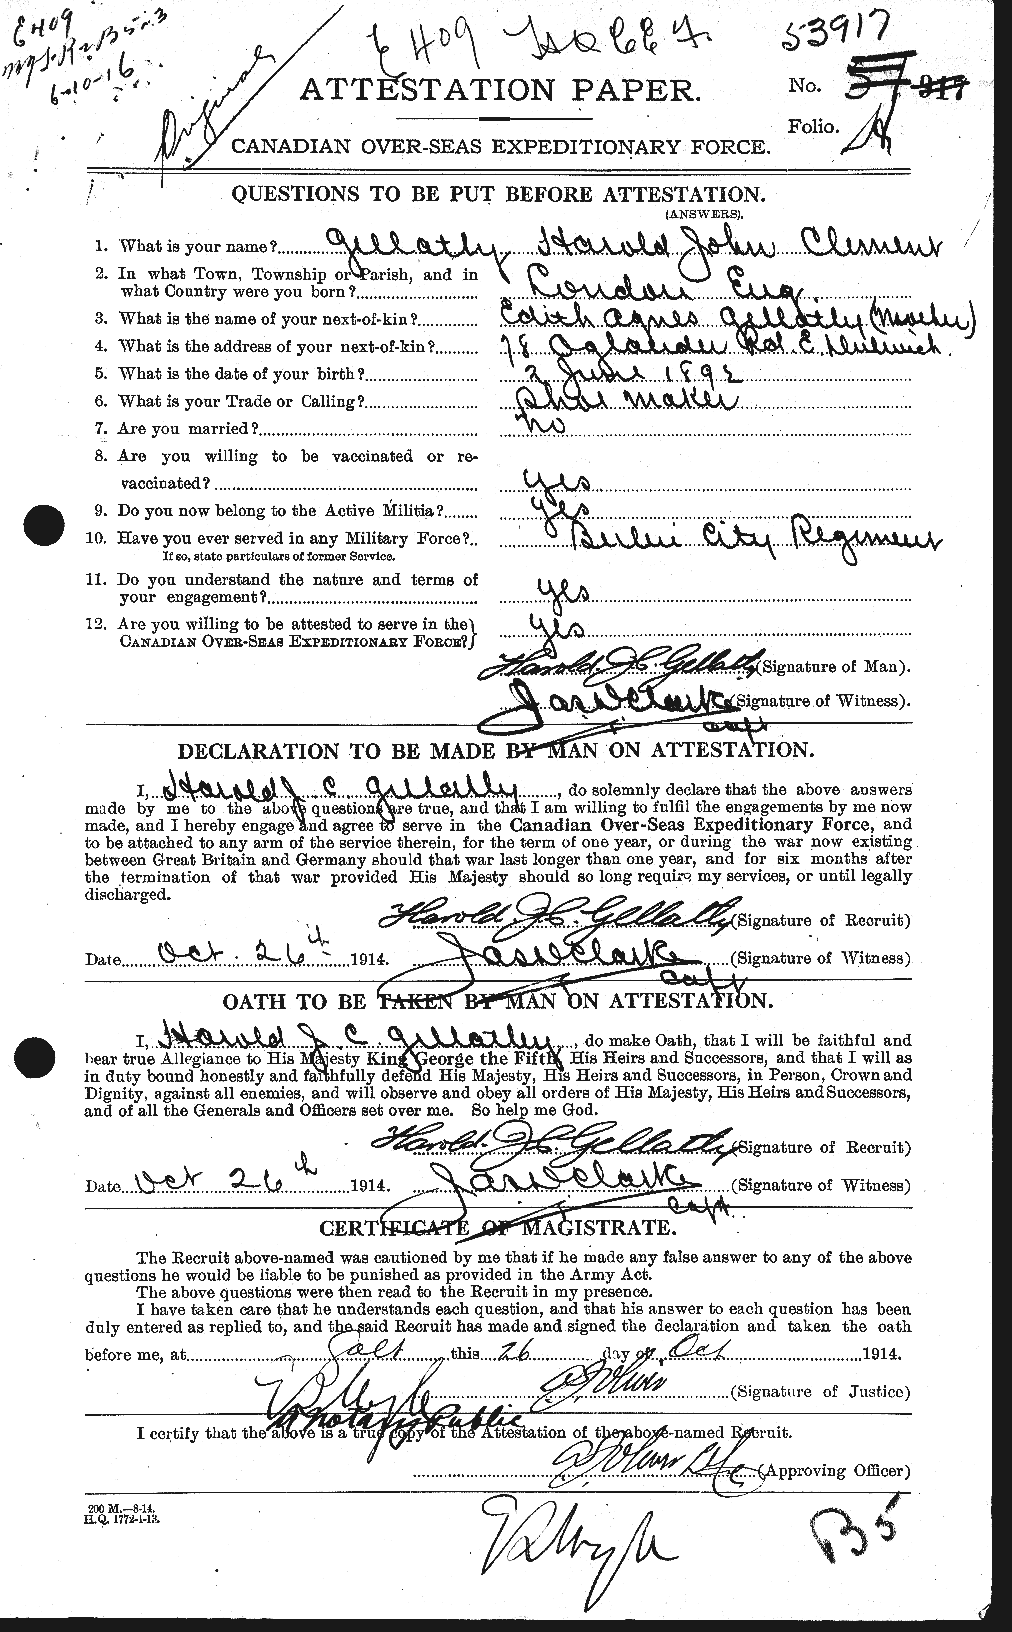 E409
6-10-16
Original
E 409
53917
ATTESTATION PAPER.
No. 917
Folio.
CANADIAN OVER-SEAS EXPEDITIONARY FORCE.
QUESTIONS TO BE PUT BEFORE ATTESTATION.
(ANSWERS).
1. What is your name? Gellatly Harold John Clement
2. In what Town, Township or Parish, and in
what Country were you born? London Eng.
3. What is the name of your next-of-kin? Edith Agnes Gellatly (Mother)
4. What is the address of your next-of-kin? 78 Oglander Rd. E. Dulwich.
5. What is the date of your birth? 2 June 1892
6. What is your Trade or Calling? Shoe maker
7. Are you married? no
8. Are you willing to be vaccinated or re-
vaccinated? yes
9. Do you now belong to the Active Militia? yes
10. Have you ever served in any Military Force? Berlin City Regiment
If so, state particulars of former Service.
11. Do you understand the nature and terms of
your engagement? yes
12. Are you willing to be attested to serve in the
CANADIAN OVER-SEAS EXPEDITIONARY FORCE? yes
Harold. J C. Gellatly (Signature of Man).
Jas W Clarke (Signature of Witness).
Capt
DECLARATION TO BE MADE BY MAN ON ATTESTATION.
I, Harold J C Gellatly, do solemnly declare that the above answers
made by me to the above questions are true, and that I am willing to fulfil the engagements by me now
made, and I hereby engage and agree to serve in the Canadian Over-Seas Expeditionary Force, and
to be attached to any arm of the service therein, for the term of one year, or during the war now existing
between Great Britain and Germany should that war last longer than one year, and for six months after
the termination of that war provided His Majesty should so long require my services, or until legally
discharged.
Harold. J C. Gellatly (Signature of Recruit)
Date Oct. 26th 1914. Jas W Clarke (Signature of Witness)
Capt
OATH TO BE TAKEN BY MAN ON ATTESTATION.
I, Harold J C. Gellatley, do make Oath, that I will be faithful and
bear true Allegiance to His Majesty King George the Fifth, His Heirs and Successors, and that I will as
in duty bound honestly and faithfully defend His Majesty, His Heirs and Successors, in Person, Crown and
Dignity, against all enemies, and will observe and obey all orders of His Majesty, His Heirs and Successors,
and of all the Generals and Officers set over me. So help me God.
Harold. J C. Gellatly (Signature of Recruit)
Date Oct 26th 1914. Jas W Clarke (Signature of Witness)
Capt.
CERTIFICATE OF MAGISTRATE.
The Recruit above-named was cautioned by me that if he made any false answer to any of the above
questions he would be liable to be punished as provided in the Army Act.
The above questions were then read to the Recruit in my presence.
I have taken care that he understands each question, and that his answer to each question has been
duly entered as replied to, and the said Recruit has made and signed the declaration and taken the oath
before me, at Galt this 26 day of Oct 1914.
(Signature of Justice)
A Notary Public
I certify that the above is a true copy of the Attestation of the above-named Recruit.
(Approving Officer)
200 M.—8-14.
H.Q. 1772-1-13.
B5